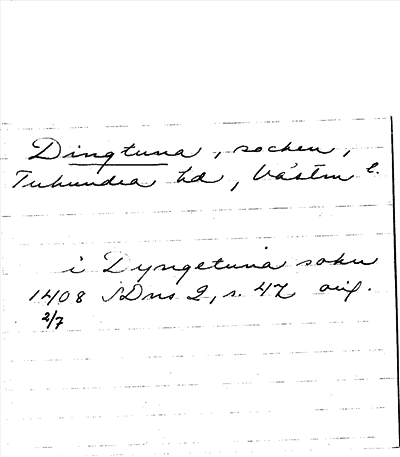 Dingtuna, socken,
Tuhundra hd, Västm l.
i Dyngetuna sokn
1408 SDns 2, s. 47 orig.
2/7